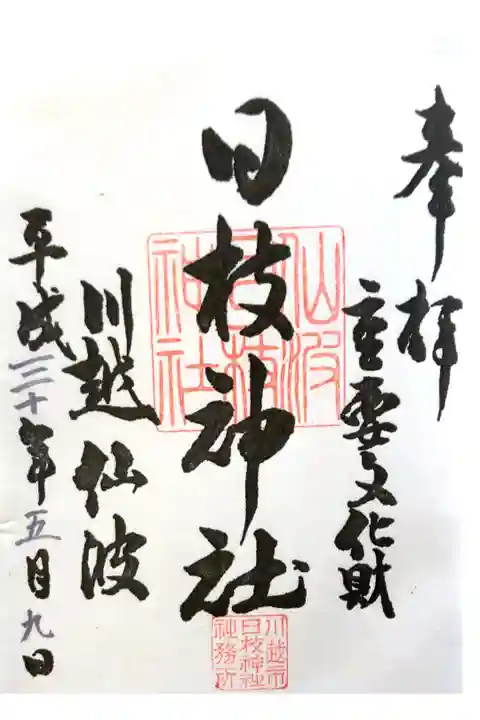 奉拝
重要文化財
日枝神社
仙波
日枝
神社
川越市
日枝神社
社務所
川越仙波
平成三十年五月九日